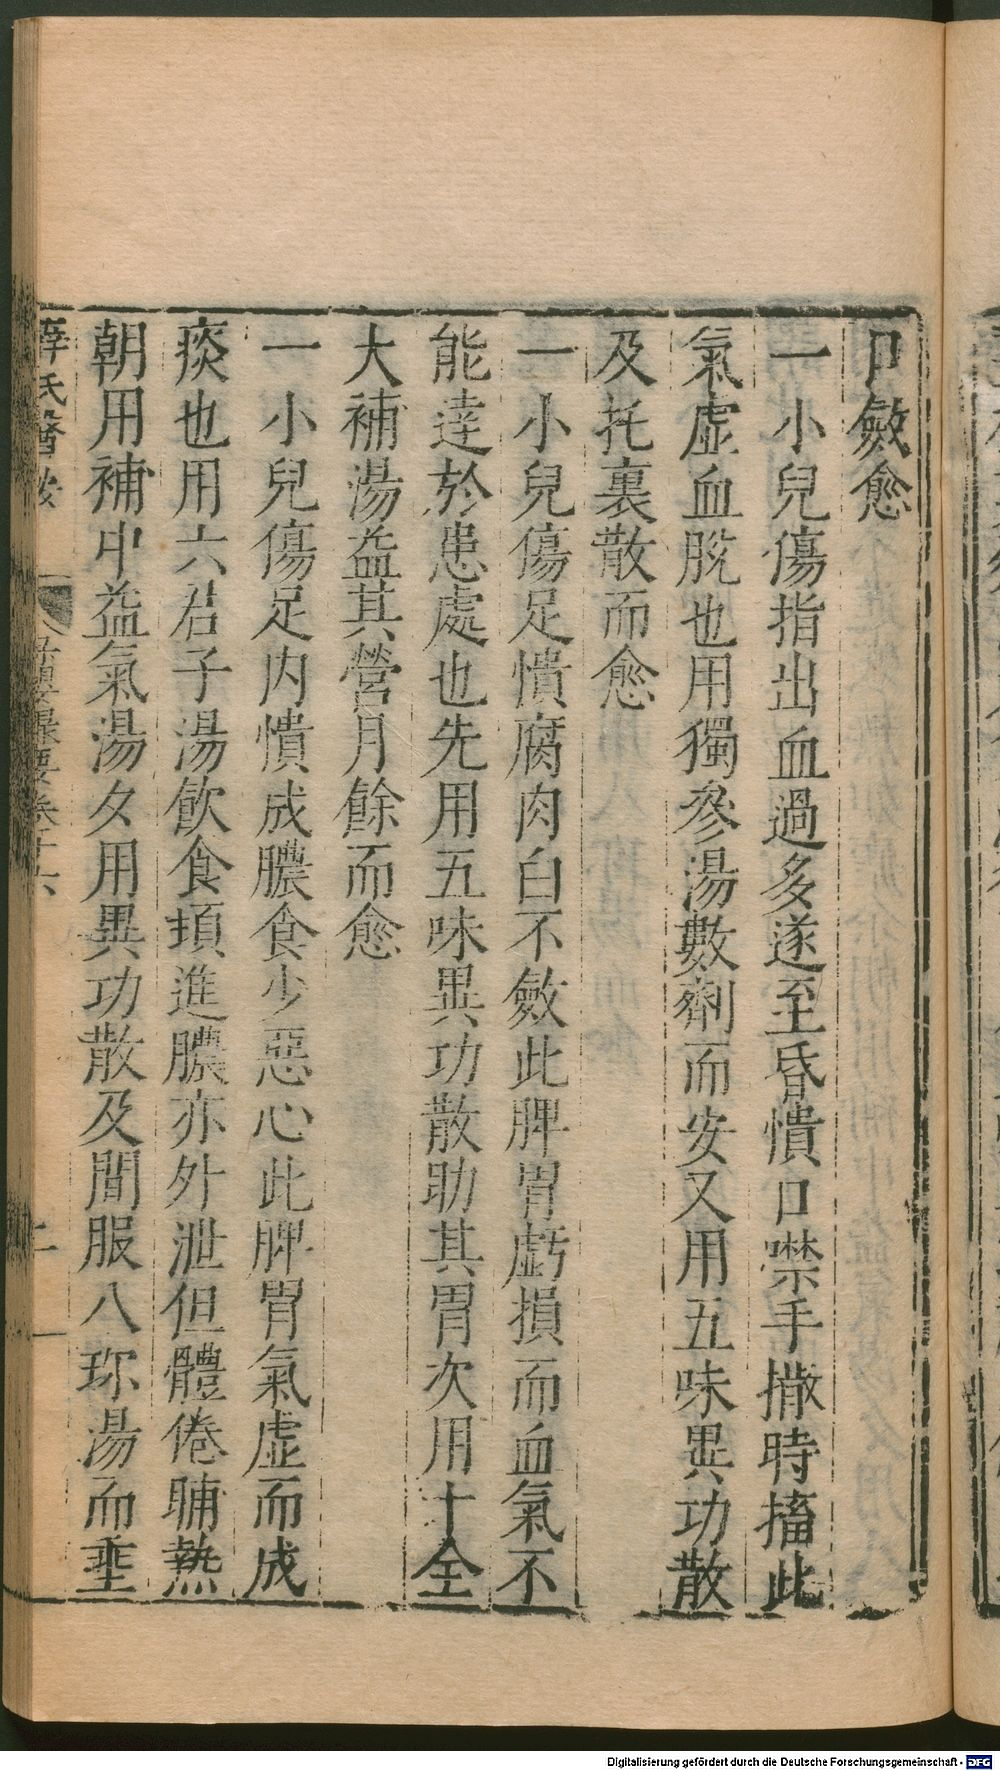 口斂愈
一小兒傷指出血過多遂至昏憒口噤手撒時搐此
氣虛血脫也用獨參湯數劑而安又用五味異功散
及托裏散而愈
一小兒傷足憒腐肉白不斂此脾胃虧損而血氣不
能達於患處也先用五味異功散助其胃次用十全
大補湯益其營月餘而愈
一小兒傷足内憒成膿食少惡心此脾胃氣虛而成
痰也用六君子湯飲食頓進膿亦外泄但體倦晡熱
朝用補中益氣湯夕用異功散及間服八珎湯而瘥
薛氏醫按
保嬰撮要卷十六
Digitalisierung gefördert durch die Deutsche Forschungsgemeinschaft - DFG